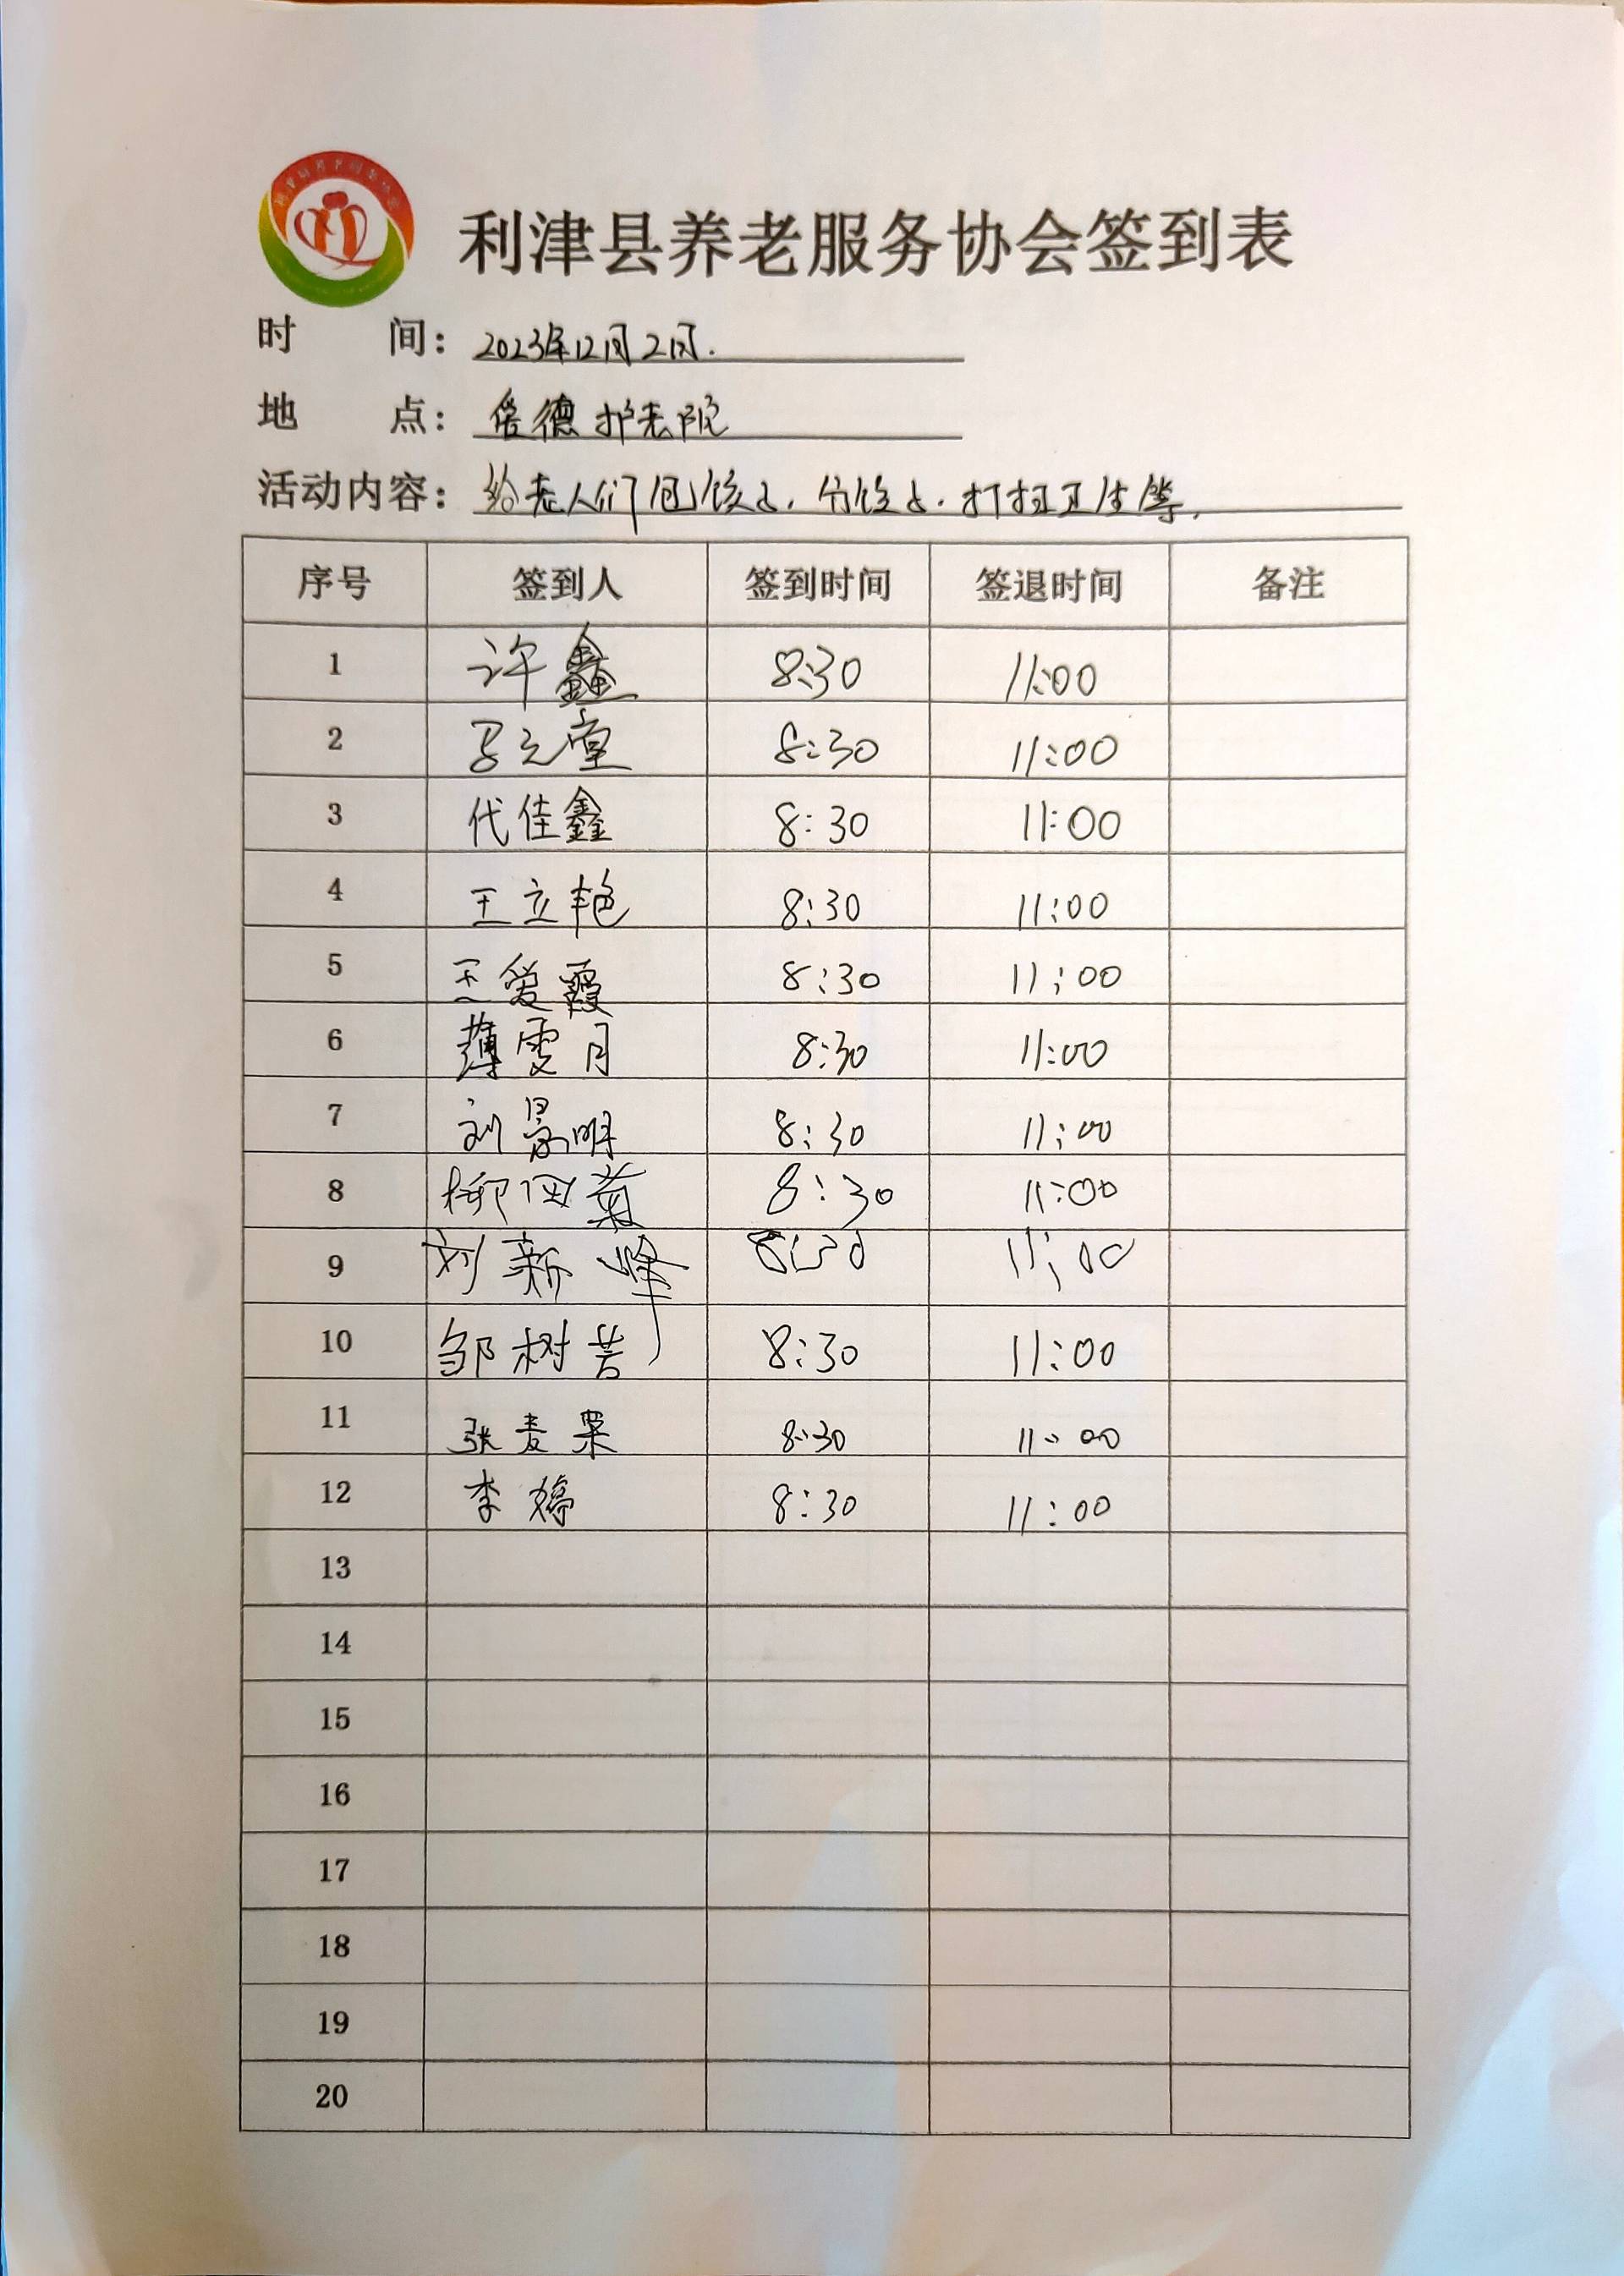 利津县养老服务协会签到表
时 间： 2023年12月2日.
地 点： 爱德护老院
活动内容： 给老人们包饺子、分饺子、打扫卫生等.
序号 签到人 签到时间 签退时间 备注
1 许鑫 8:30 11:00
2 8:30 11:00
3 代佳鑫 8:30 11:00
4 王立艳 8:30 11:00
5 王爱霞 8:30 11:00
6 薄雯月 8:30 11:00
7 刘景明 8:30 11:00
8 柳田菊 8:30 11:00
9 刘新峰 8:30 11:00
10 邹树芳 8:30 11:00
11 张麦果 8:30 11:00
12 李婷 8:30 11:00
13
14
15
16
17
18
19
20